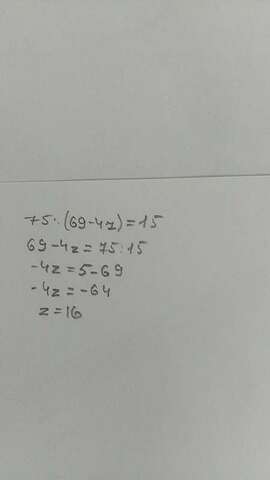 75:(69-4z)=15
69-4z=75:15
-4z=5-69
-4z=-64
z=16